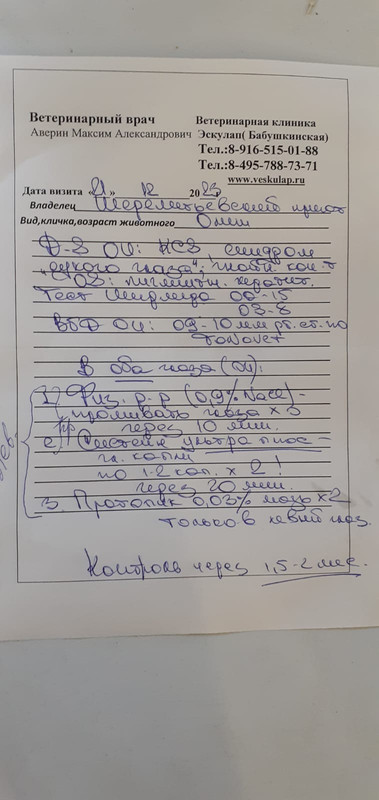 Ветеринарный врач
Аверин Максим Александрович
Ветеринарная клиника
Эскулап( Бабушкинская)
Тел.:8-916-515-01-88
Тел.:8-495-788-73-71
www.veskulap.ru
Дата визита 21 » 12 2023г.
Владелец Шереметьевский приют
Вид,кличка,возраст животного Олли
Д-З OU: КСЗ, синдром
"сухого глаза",
OS: пигментн. кератит.
Тест Ширмера OD-15
OS-8
ВГД OU: 09-10 мм рт. ст. по
TonoVet
В оба глаза (OU):
1) Физ. р-р (0,9% NaCl) -
промывать глаза x 3
через 10 мин.
2) Систейн ультра плюс -
гл. капли
по 1-2 кап. x 2!
через 20 мин.
3. Протопик 0,03% мазь x2
только в левый глаз.
Контроль через 1,5-2 мес.